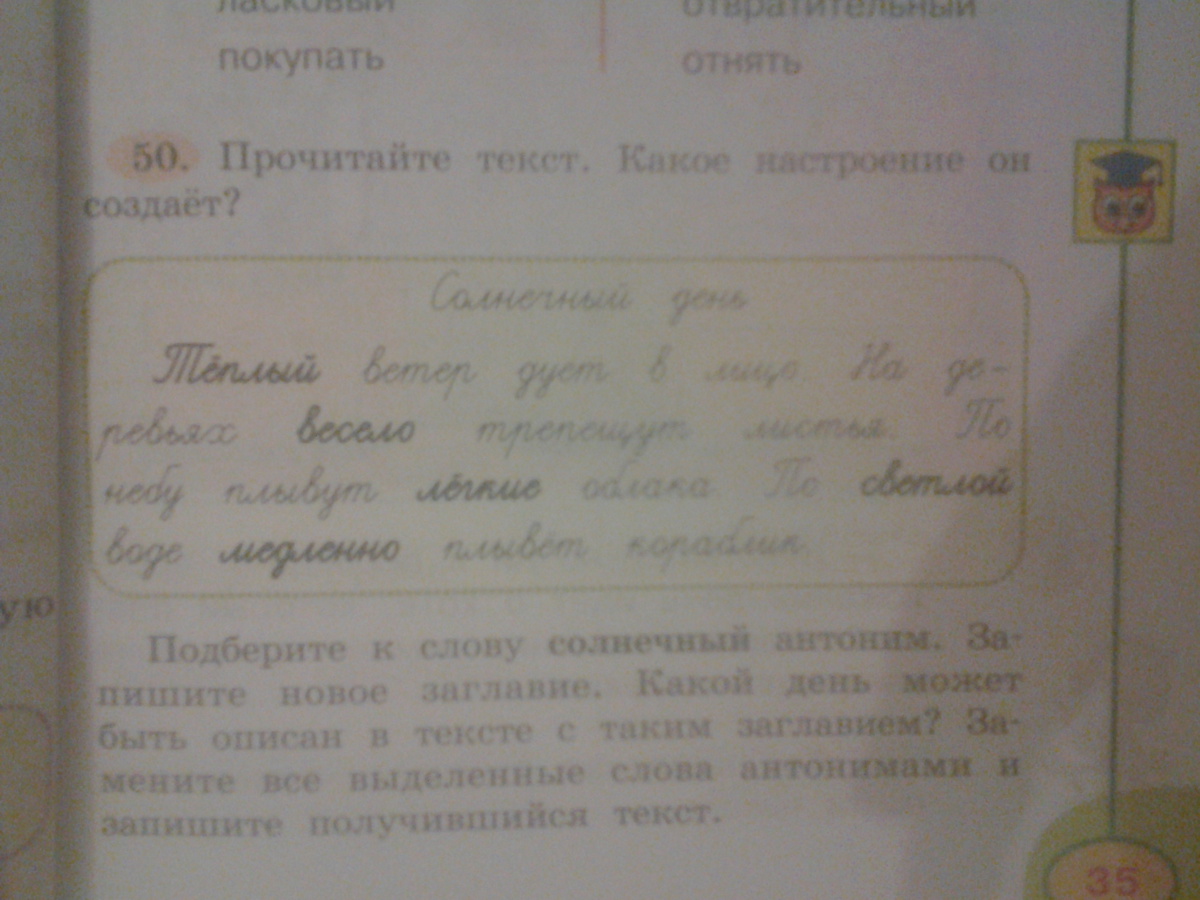 ласковый отвратительный
покупать отнять
50. Прочитайте текст. Какое настроение он
создаёт?
Солнечный день
Тёплый ветер дует в лицо. На де-
ревьях весело трепещут листья. По
небу плывут лёгкие облака. По светлой
воде медленно плывёт кораблик.
ую
Подберите к слову солнечный антоним. За-
пишите новое заглавие. Какой день может
быть описан в тексте с таким заглавием? За-
мените все выделенные слова антонимами и
запишите получившийся текст.
35